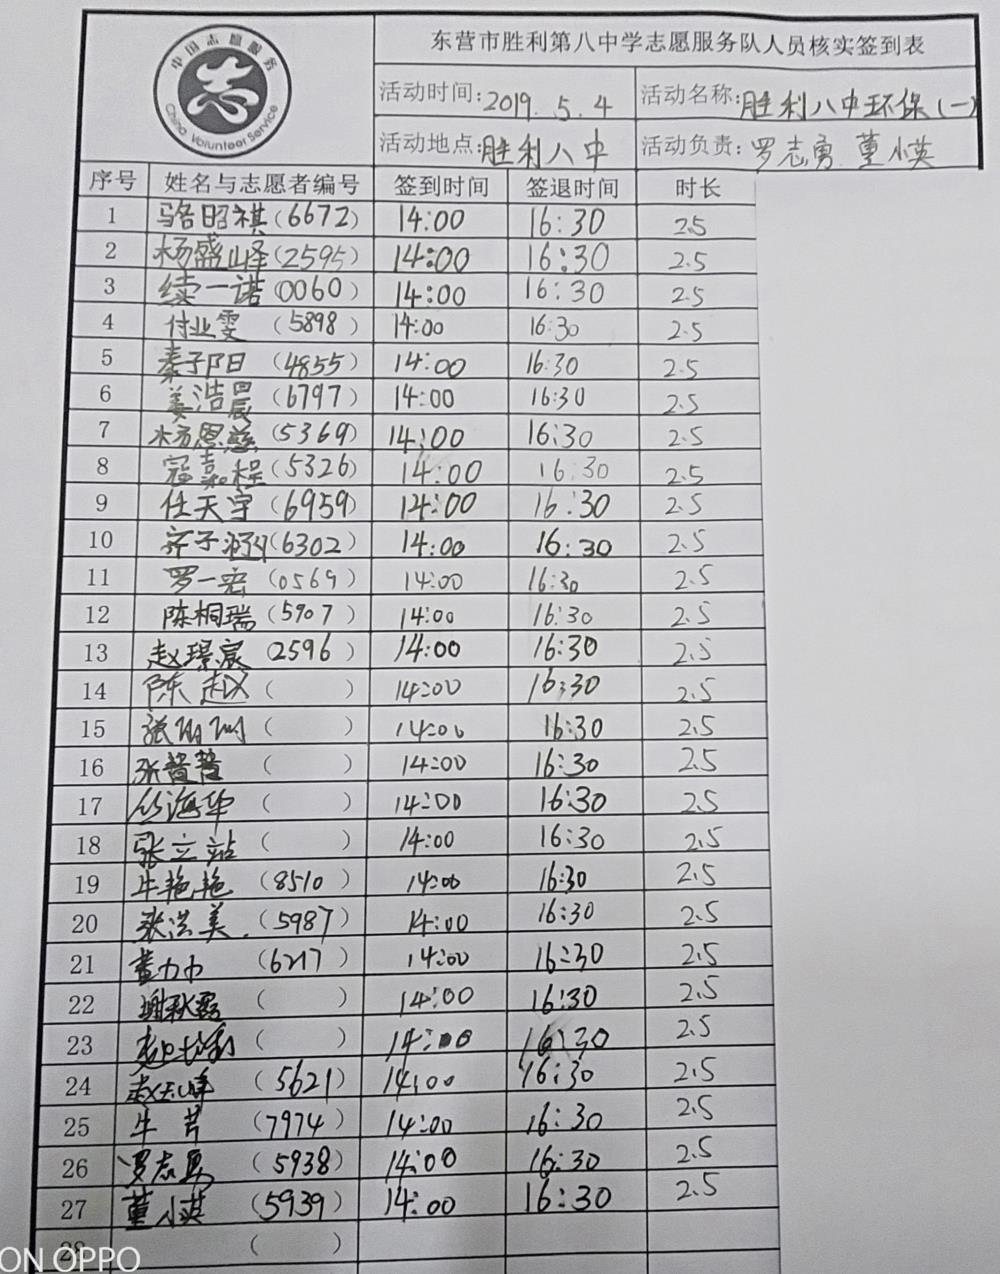 中国志愿服务
志
China Volunteer Service
东营市胜利第八中学志愿服务队人员核实签到表
活动时间:2019.5.4 活动名称:胜利八中环保(一)
活动地点:胜利八中 活动负责:罗志勇 董小英
序号 姓名与志愿者编号 签到时间 签退时间 时长
1 骆昭祺(6672) 14:00 16:30 2.5
2 杨盛峄(2595) 14:00 16:30 2.5
3 续一诺(0060) 14:00 16:30 2.5
4 付业雯 (5898) 14:00 16:30 2.5
5 秦子阳 (4855) 14:00 16:30 2.5
6 姜浩晨 (6797) 14:00 16:30 2.5
7 杨恩慈 (5369) 14:00 16:30 2.5
8 寇嘉程 (5326) 14:00 16:30 2.5
9 任天宇 (6959) 14:00 16:30 2.5
10 齐子涵(6302) 14:00 16:30 2.5
11 罗一宏 (0569) 14:00 16:30 2.5
12 陈桐瑞(5907) 14:00 16:30 2.5
13 赵璟宸(2596) 14:00 16:30 2.5
14 陈赵 ( ) 14:00 16:30 2.5
15 张 ( ) 14:00 16:30 2.5
16 张 ( ) 14:00 16:30 2.5
17 丛海华 ( ) 14:00 16:30 2.5
18 张立站 ( ) 14:00 16:30 2.5
19 牛艳艳 (8510) 14:00 16:30 2.5
20 张洪美.(5987) 14:00 16:30 2.5
21 (6217) 14:00 16:30 2.5
22 谢秋霞 ( ) 14:00 16:30 2.5
23 ( ) 14:00 16:30 2.5
24 赵 (5621) 14:00 16:30 2.5
25 牛 (7974) 14:00 16:30 2.5
26 罗志勇 (5938) 14:00 16:30 2.5
27 董小英 (5939) 14:00 16:30 2.5
28 ( )
ON OPPO